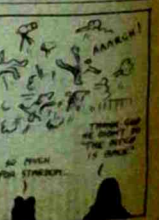 AAARGH!
THANK GOD
WE DIDN'T DO
"THE
IS BACK"
SO MUCH
FOR STARDOM...